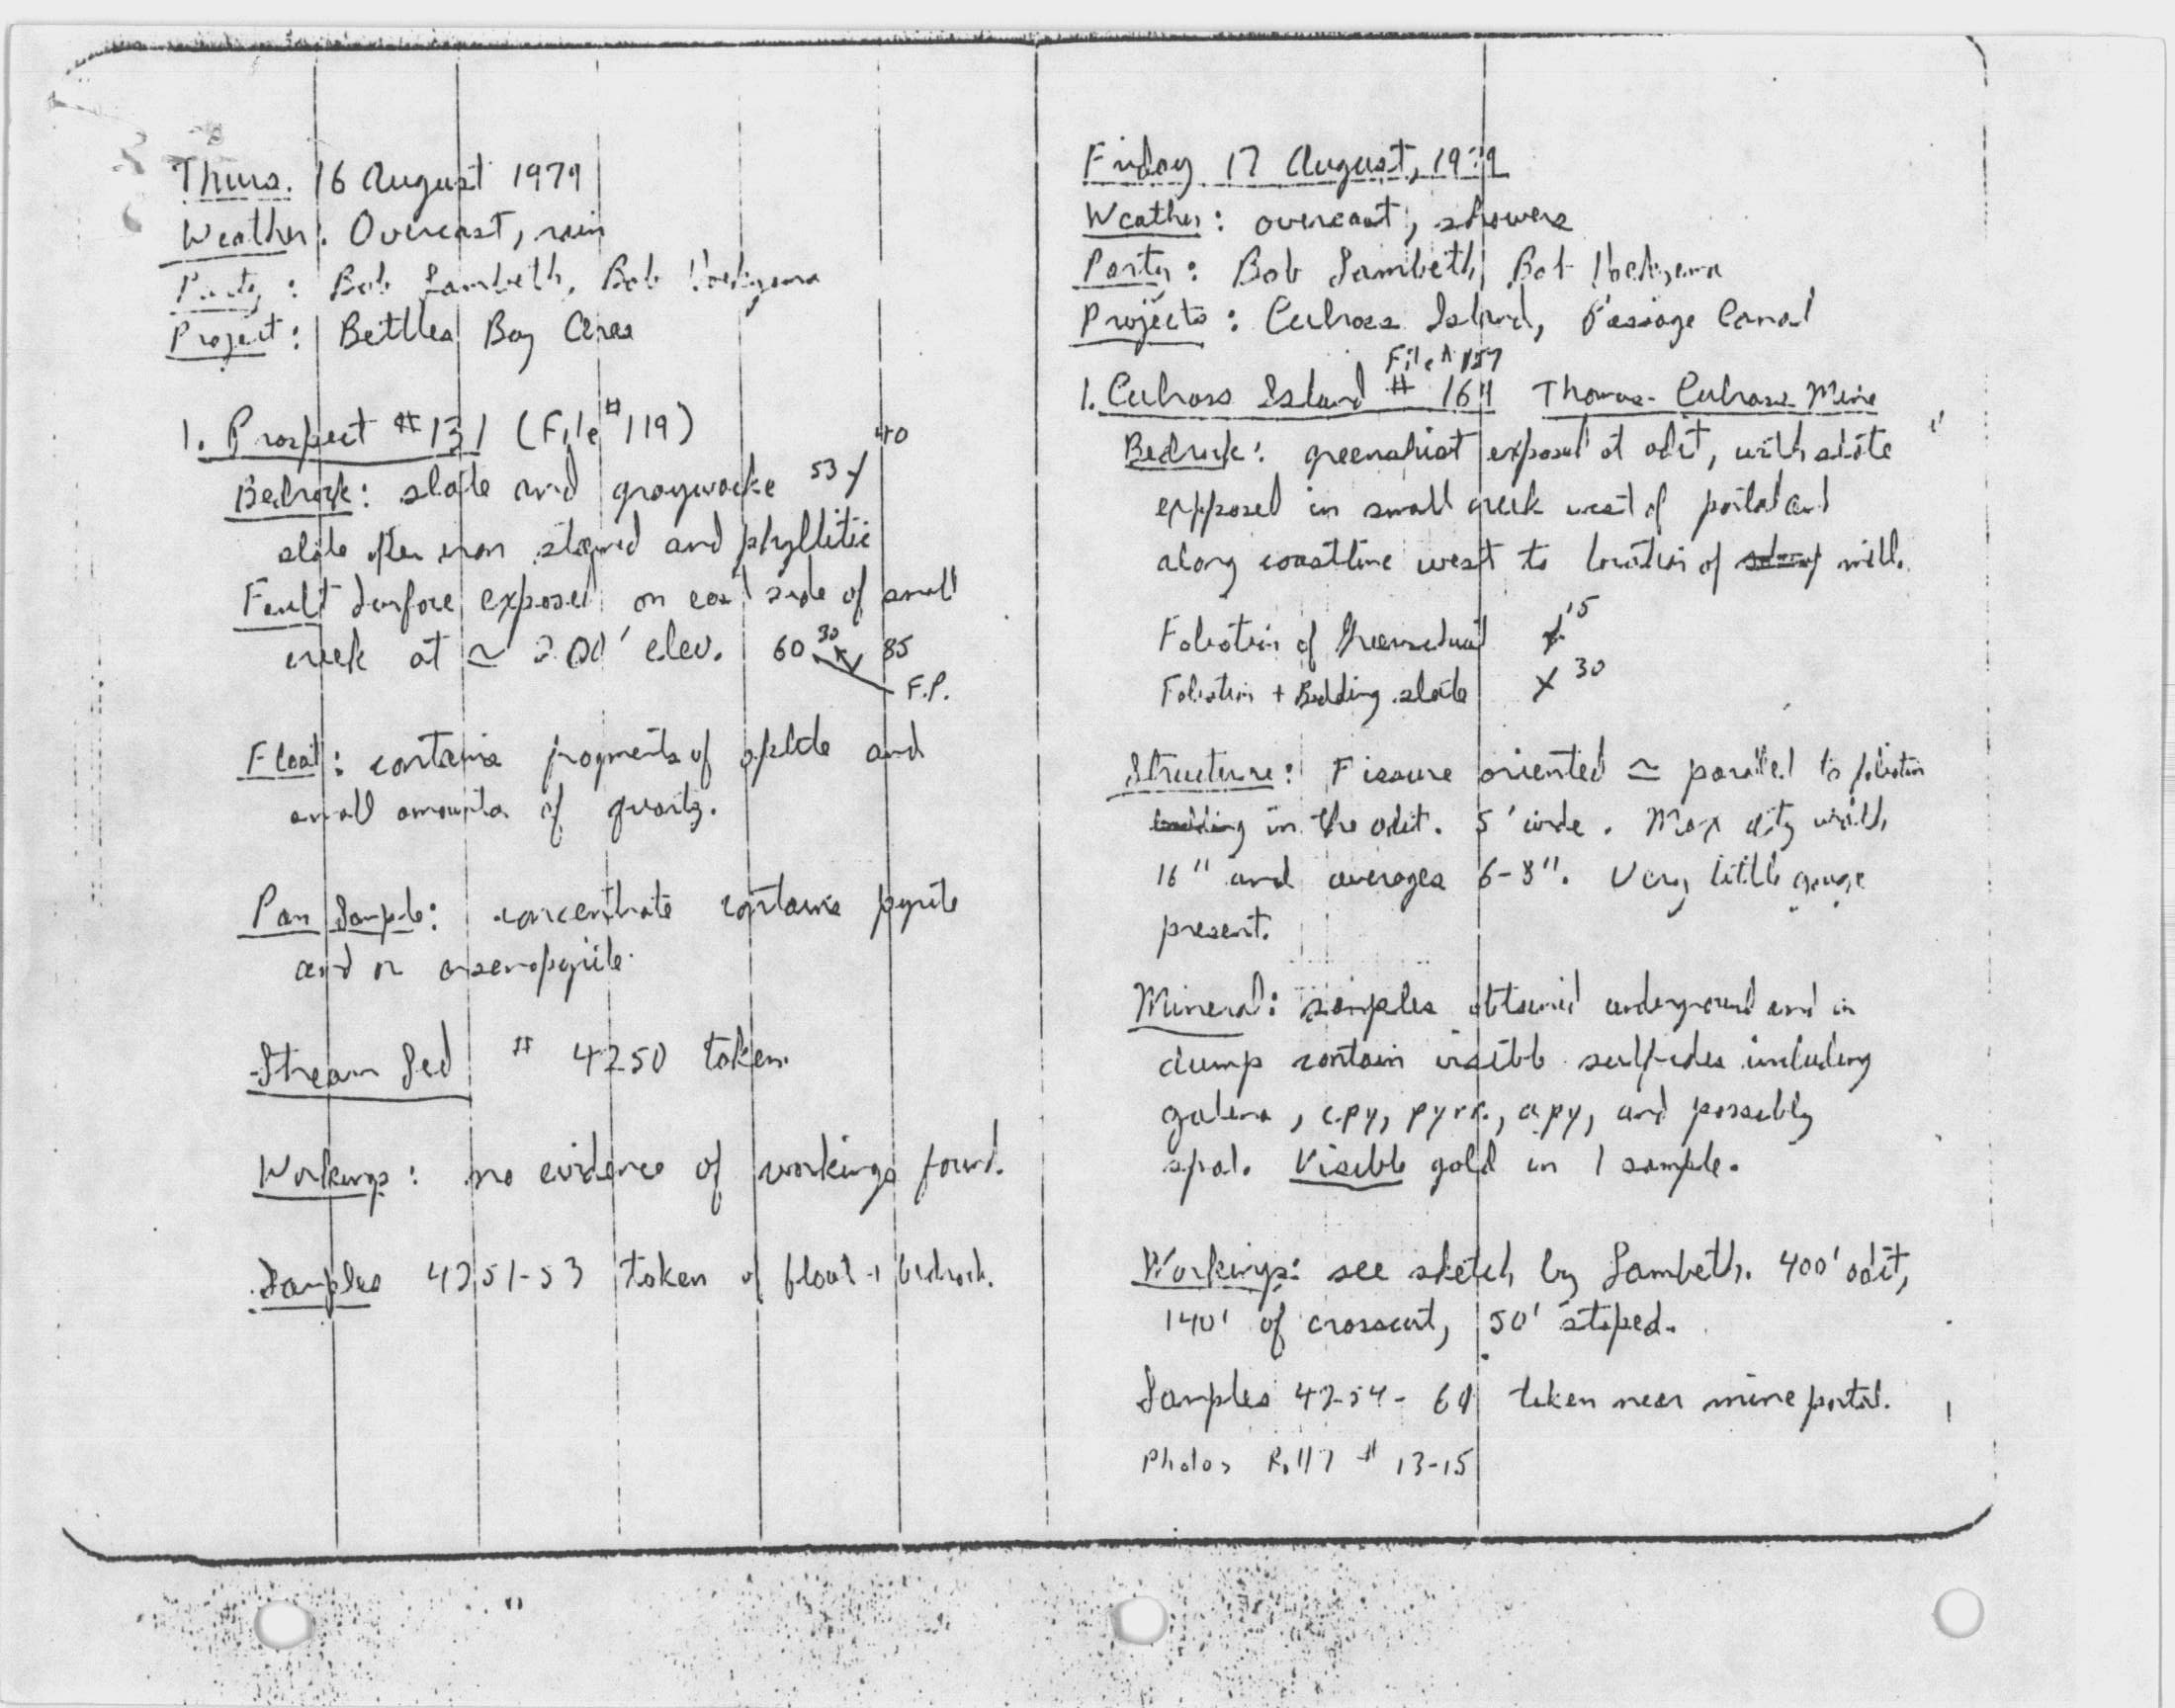 Thurs. 16 August 1979
Weather: Overcast, rain
Party: Bob Lambeth, Bob
Project: Bettles Bay Area
1. Prospect #131 (File #119)
Bedrock: slate and graywacke 53 40
slate often iron stained and phyllitic
Fault Surface exposed on east side of small
creek at ≃ 200' elev. 60 30 85
F.P.
Float: contains fragments of aplite and
small amounts of quartz.
Pan Sample: concentrate contains pyrite
and or arsenopyrite.
Stream Sed # 4250 taken.
Workings: no evidence of workings found.
Samples 4251-53 taken of float + bedrock.
Friday 17 August, 1979
Weather: overcast, showers
Party: Bob Lambeth, Bob
Projects: Culross Island, Passage Canal
File # 157
1. Culross Island # Thomas-Culross Mine
Bedrock: greenschist exposed at adit, with slate
expposed in small creek west of portal and
along coastline west to location of mill.
Foliation of Greenschist 15
Foliation + Bedding slate 30
Structure: Fissure oriented ≃ parallel to foliation
bedding in the adit. 5' wide. Max qtz width
16" and averages 6-8". Very little gouge
present.
Mineral: samples obtained underground and in
dump contain visible sulfides including
galena, cpy, pyrr., apy, and possibly
spal. Visible gold in 1 sample.
Workings: see sketch by Lambeth. 400' adit,
140' of crosscut, 50' stoped.
Samples 4254- taken near mine portal.
Photos Roll 7 # 13-15